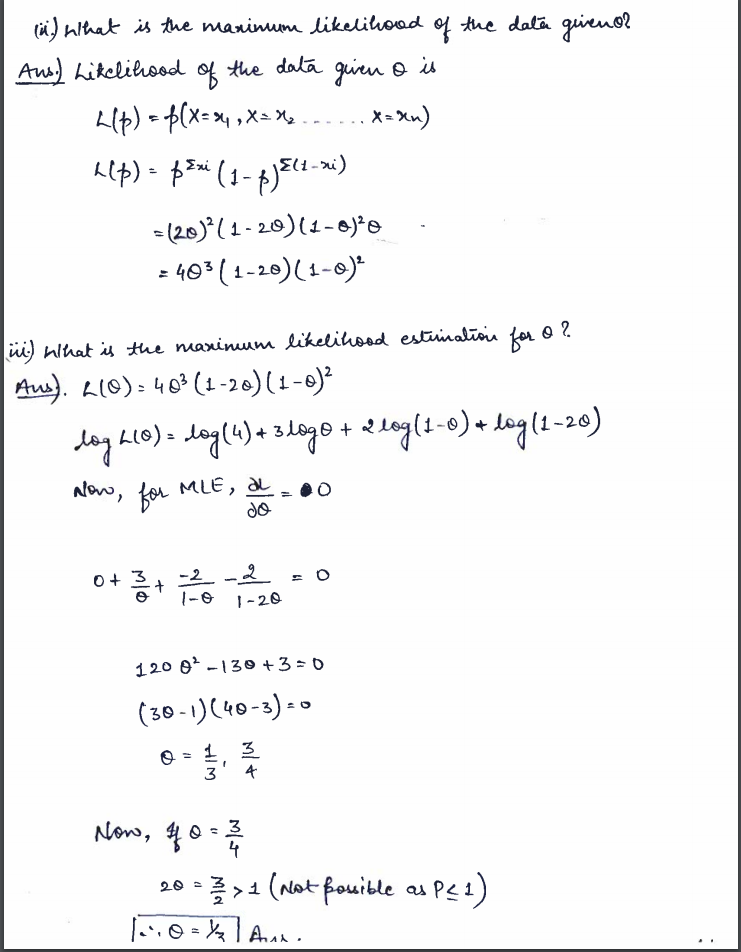 (ii.) What is the maximum likelihood of the data given θ?
Ans.) Likelihood of the data given θ is
L(p) = p(X=x₁, X=x₂ ....... X=xₙ)
L(p) = p^Σxi (1-p)^Σ(1-xi)
= (2θ)² (1-2θ)(1-θ)²θ
= 4θ³ (1-2θ)(1-θ)²
iii.) What is the maximum likelihood estimation for θ?
Ans). L(θ) = 4θ³ (1-2θ)(1-θ)²
log L(θ) = log(4) + 3logθ + 2log(1-θ) + log(1-2θ)
Now, for MLE, ∂L/∂θ = 0
0 + 3/θ + -2/1-θ - 2/1-2θ = 0
120θ² - 13θ + 3 = 0
(3θ-1)(4θ-3) = 0
θ = 1/3, 3/4
Now, If θ = 3/4
2θ = 3/2 > 1 (Not possible as P≤1)
∴ θ = 1/3 Ans.